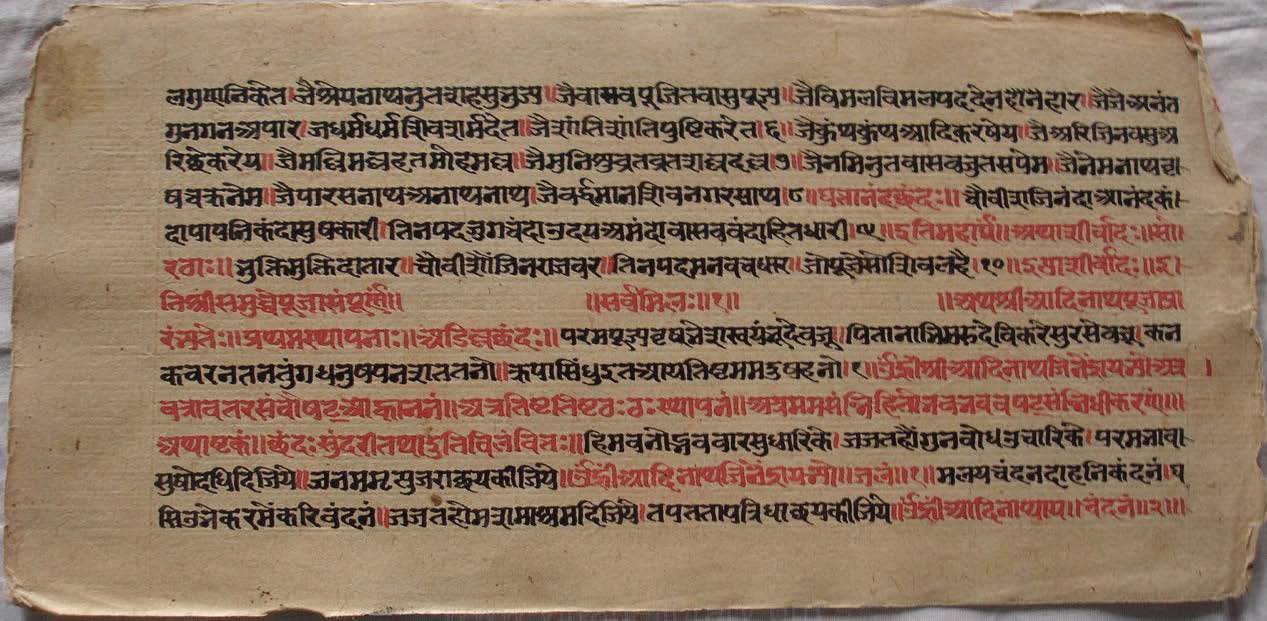 लगुणनिकेत।जैश्रेयनाथनुतशहसुनुज्य॥जैवासवपूजितवासुपूज्य॥जैविमलविमलपददेनहार।जैजैअनंत
गुनगनअपार।जधर्मधर्मशिवशर्मदेत।जैशांतिशांतिपुष्टिकरेत।६॥जैकुंथकुंथआदिकरषेय।जैअरिजिनवसुअ
रिछैकरेय॥जैमल्लिमल्लहतमोहमल्ल॥जैमुनिसुव्रतव्रतशल्लदल्ल७॥जैनमिनुतवासवनुतसपेम।जैनेमनाथवृ
षचक्रनेम॥जैपारसनाथअनाथनाथ।जैवर्द्धमानशिवनगरसाथ।८॥घत्तानंदछंदः॥चौवीशजिनंदाआनंदकं।
दापापनिकंदासुषकारी।तिनपदजुगचंदाउदयअमंदावासववंदाहितधारी।९॥इतिमहार्घं॥अथाशीर्वादः॥सो।
रठाः॥भुक्तिमुक्तिदातार॥चौवीशौंजिनराजवर॥तिनपदमनवचधार॥जोपूजैसोशिवलहै।१०॥इत्याशीर्वादः॥इ।
तिश्रीसमुच्चैपूजासंपूर्णं॥ ॥सर्वमिलः॥१॥ ॥अथश्रीआदिनाथपूजाप्रा।
रंभ्यतेः॥प्रथमस्थापनाः॥अडिल्लछंदः॥परमपूज्यवृषभेशस्वयंभूदेवजू।पितानाभिमरुदेविकरेसुरसेवजू।कन
कवरनतनतुंगधनुषपनशततनौ॥क्रपासिंधुइतआयतिष्टममदुषहनौ।१॥ॐह्रीश्रीआदिनाथजिनेंद्रायनमौअत्र
वत्रावतरसंवौषट्आह्वाननं॥अत्रतिष्टतिष्टठःठःस्थापनं॥अत्रममसंन्निहितोभवभववषट्संनिधीकरणं॥
अथाष्टकं॥छंदःसुंदरीतथाद्रुतिविलंवितः॥हिमवनौद्भववारसुधारिके।जजतहौंगुनवोधउचारिके।परमभावा
सुषोदधिदिजिये॥जनममृत्सुजराछयकीजिये॥ॐह्रीश्रीआदिनाथजिनेंद्रायनमौ॥जलं॥१॥मलयचंदनदाहनिकंदनं।घ
सिउभैकरमेंकरिवंदनं॥जजतहौंप्रशमाश्रमदिजिये।तपततापत्रिधाछयकीजिये॥ॐह्रीआदिनाथाय॥चंदनं॥२॥